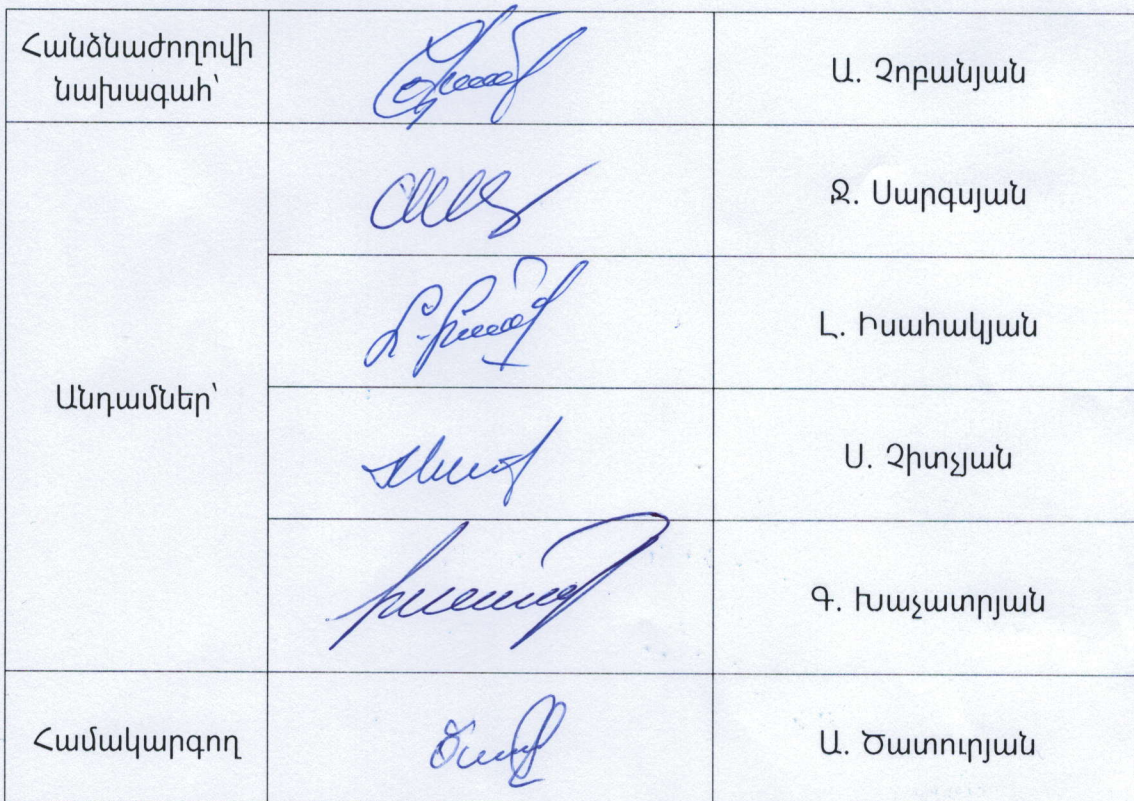 Հանձնաժողովի
նախագահ՝
Ա. Չոբանյան
Ջ. Սարգսյան
Լ. Իսահակյան
Անդամներ՝
Ս. Չիտչյան
Գ. Խաչատրյան
Համակարգող
Ա. Ծատուրյան